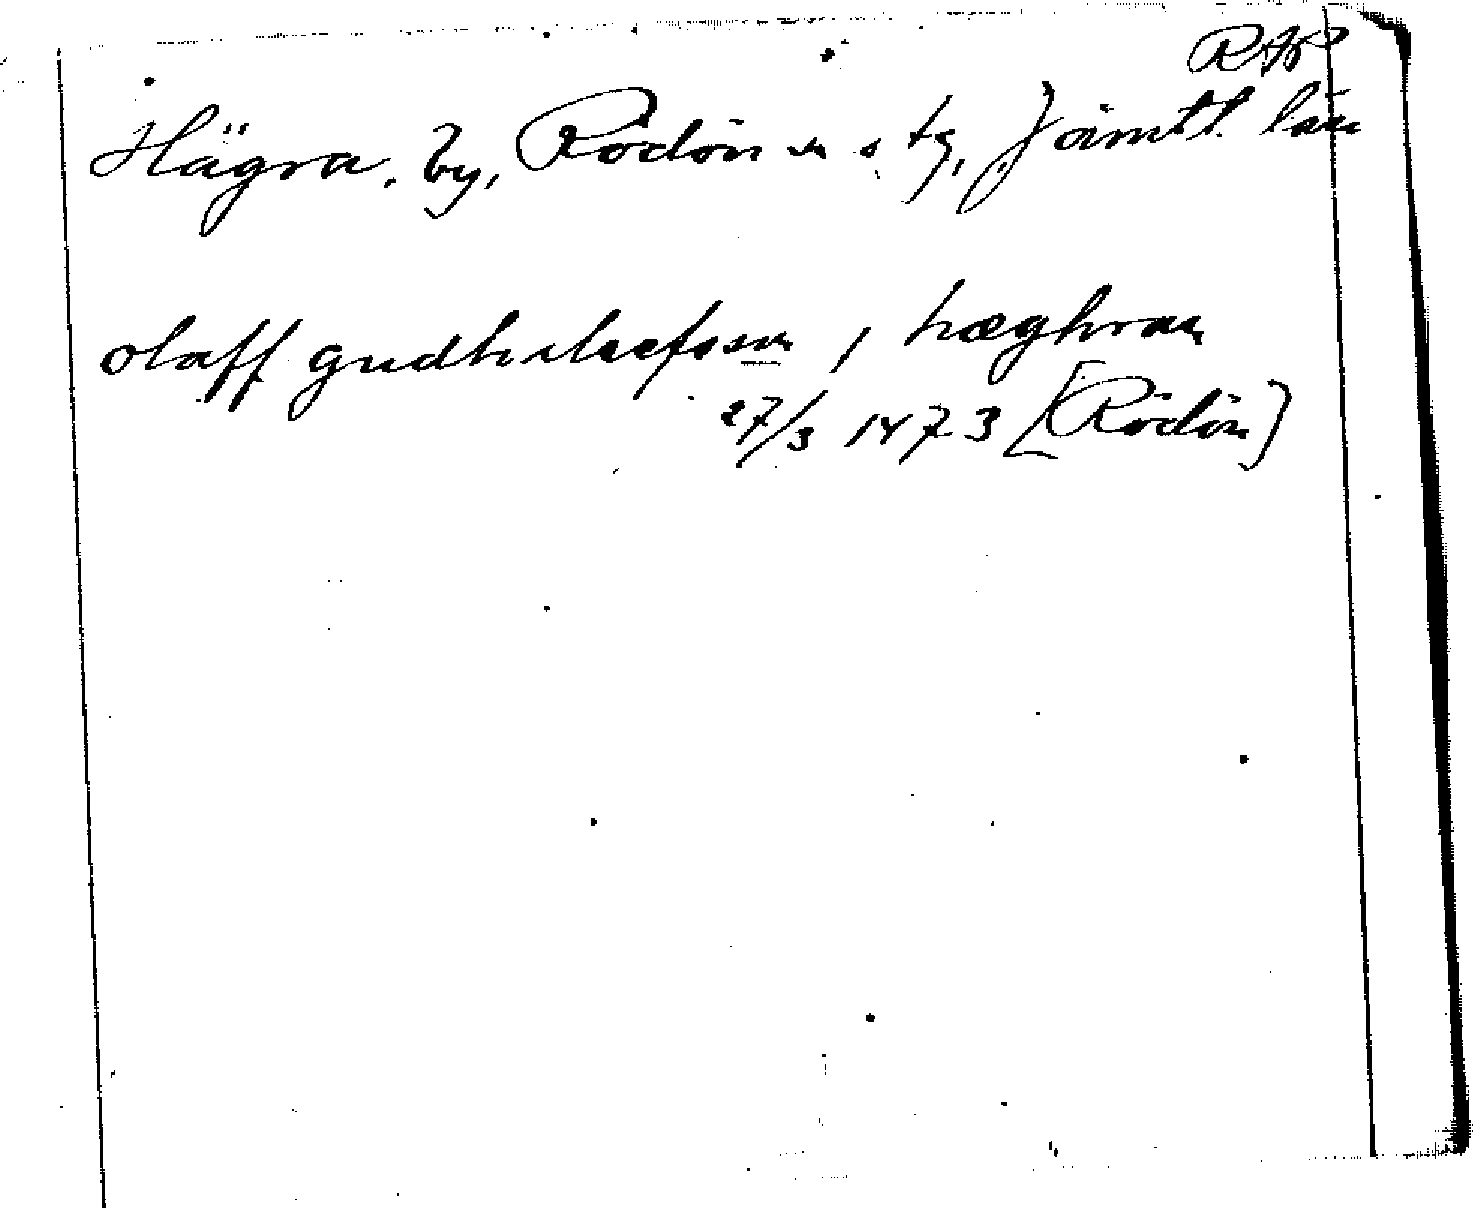 RAP
Hägra, by, Rödön sn o tg, Jämtl. län
olaff gudhelaefsson, i hæghran
27/3 1473 [Rödön]